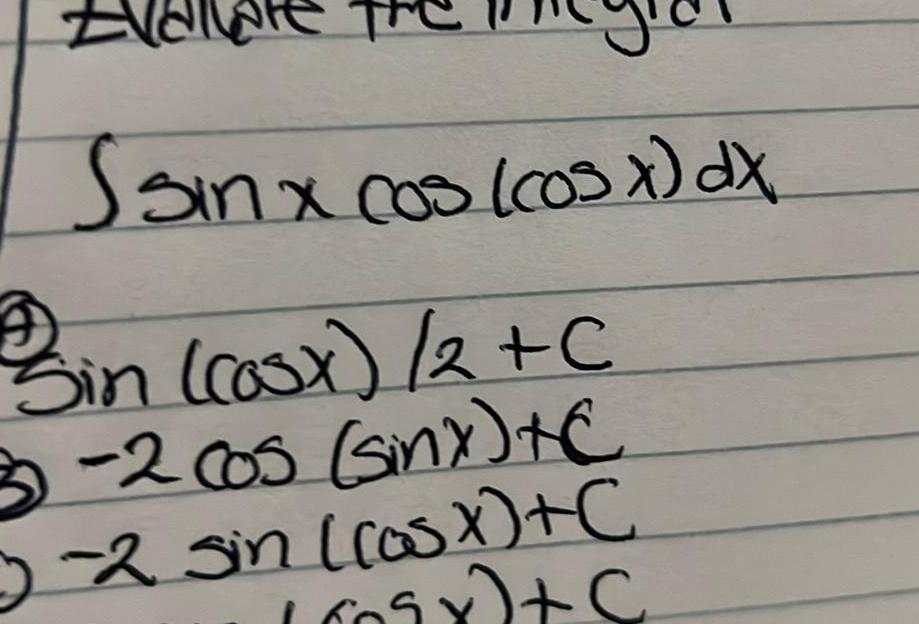 Evaluate the integral
∫ sin x cos (cos x) dx
A
Sin (cos x) /2 + C
B -2 cos (sin x) + C
-2 sin (cos x) + C
(cos x) + C